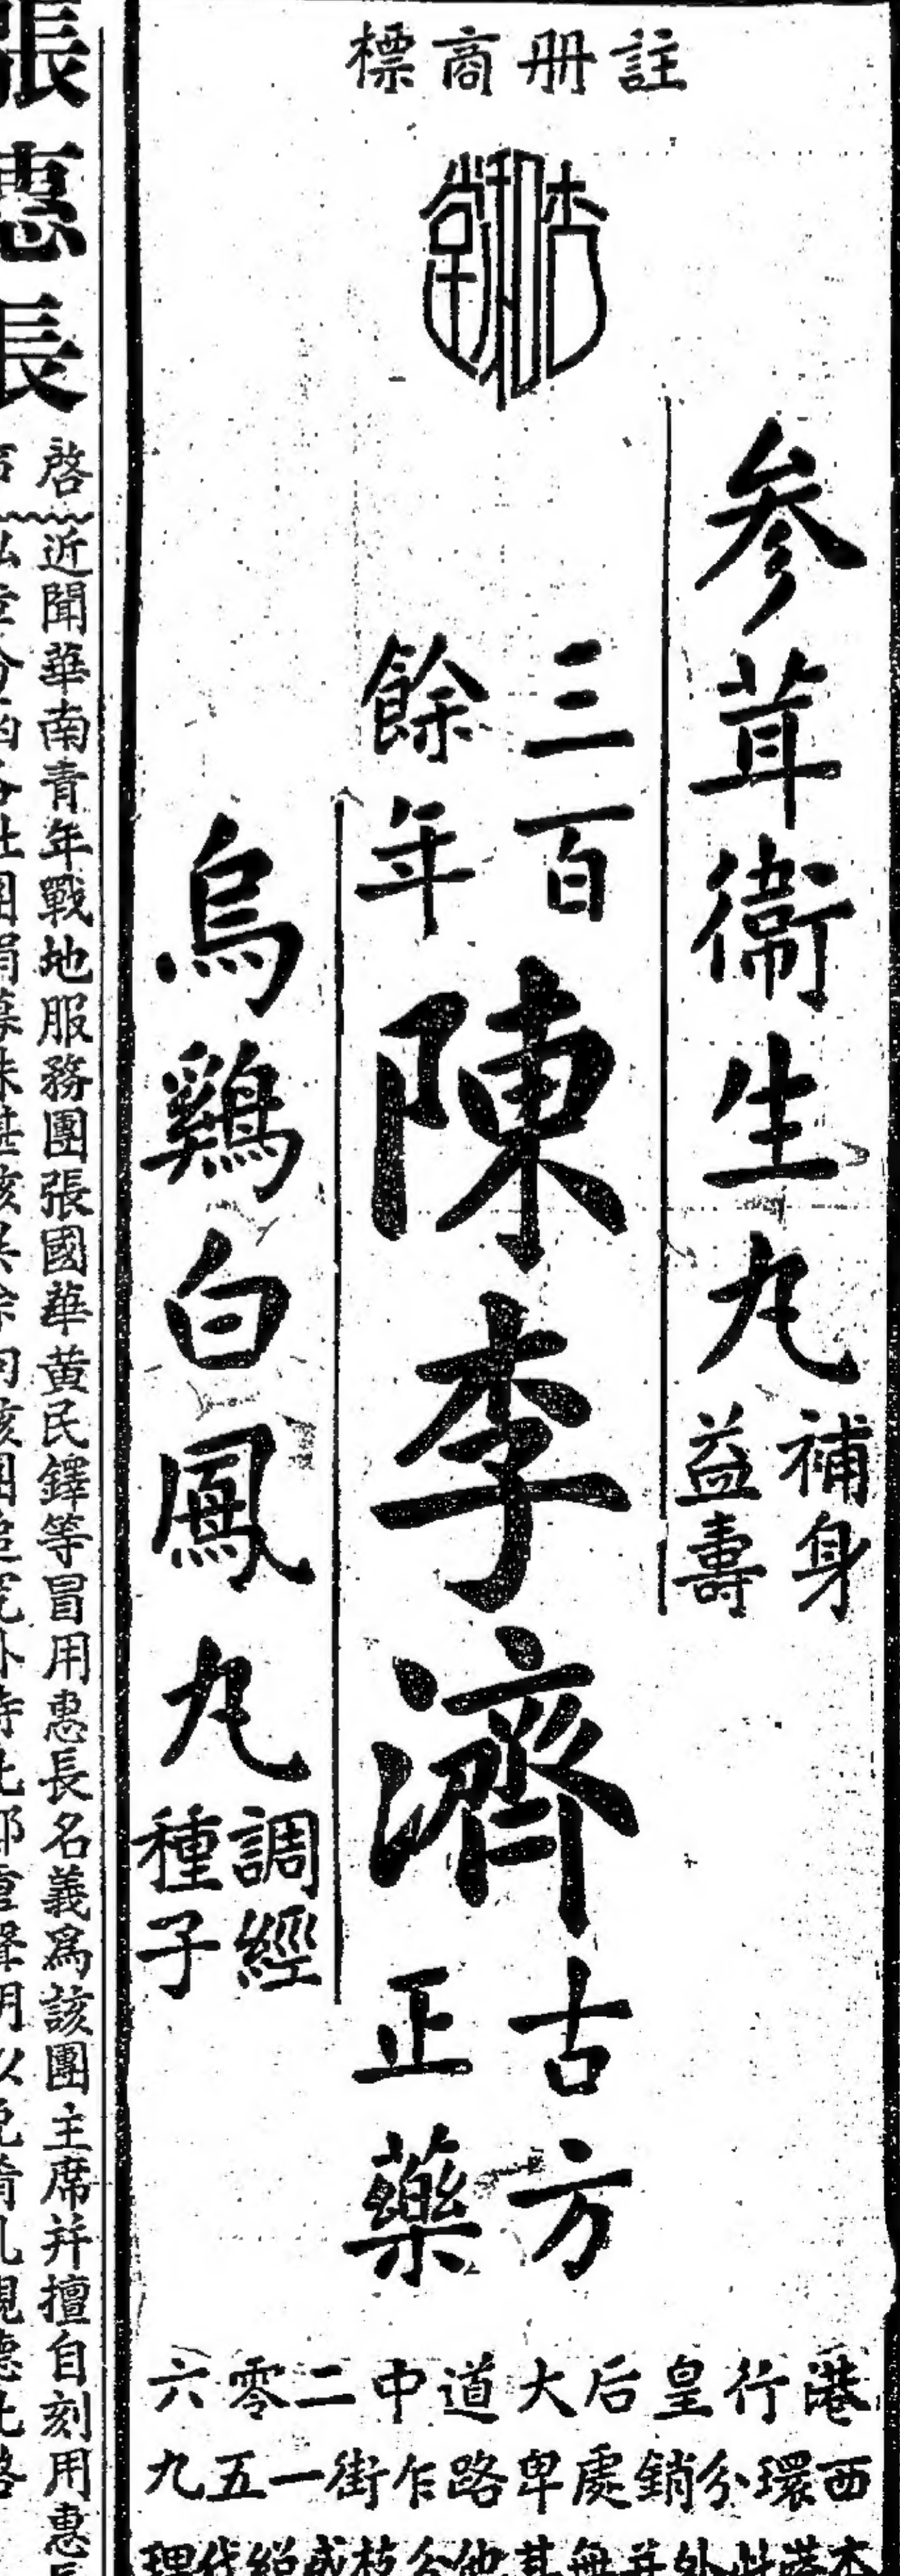 註冊商標
杏和堂
参茸衞生丸
補身
益壽
三百
餘年
陳李濟
古方
正藥
烏鷄白鳳丸
調經
種子
港行皇后大道中二零六
西環分銷處卑路乍街一五九
本港此外並無其他分枝或紹代理
張惠長
啓
近聞華南青年戰地服務團張國華黃民鐸等冒用惠長名義爲該團主席并擅自刻用惠長